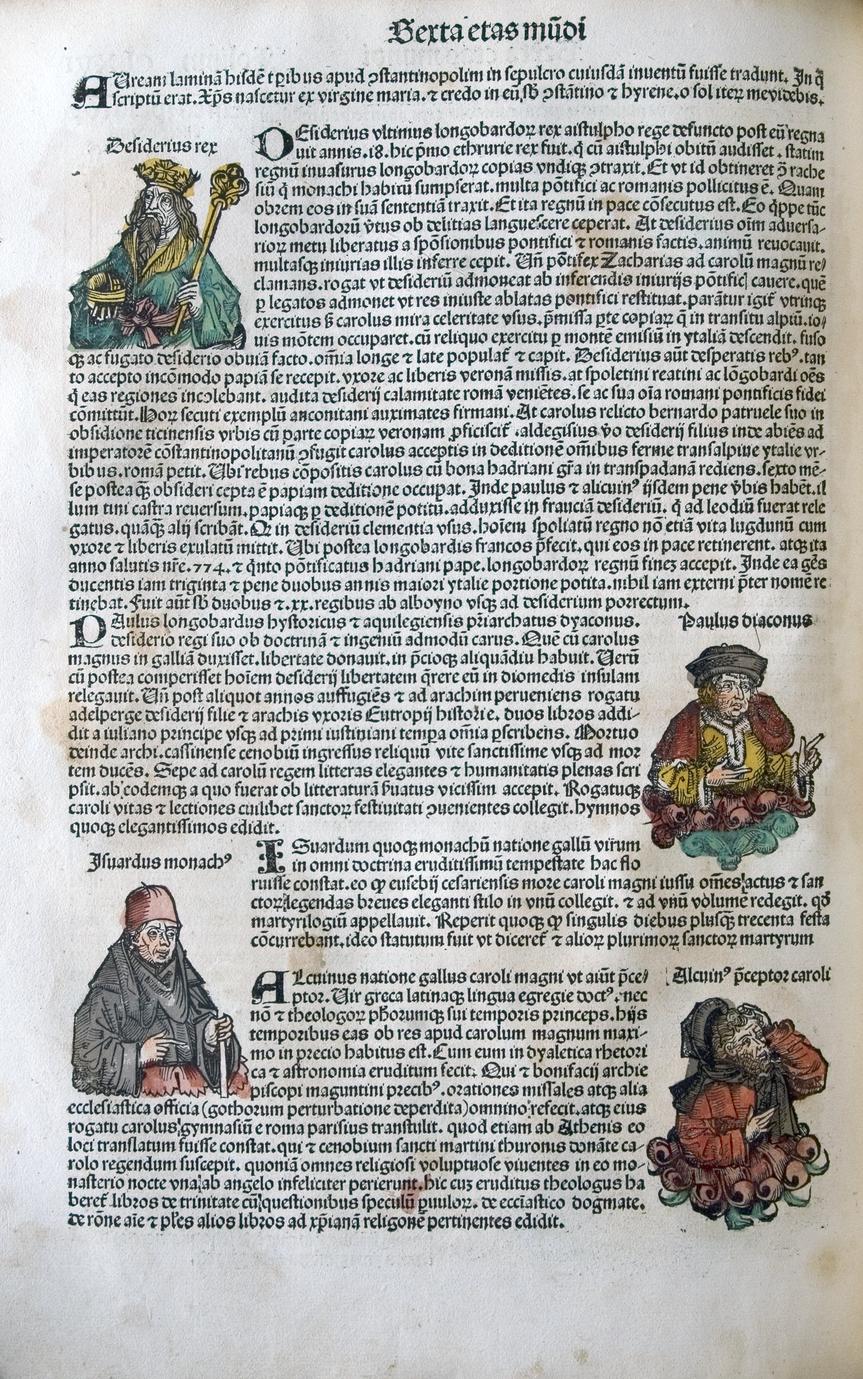 Sexta etas mũdi
AUream laminã hisdẽ tꝑibus apud ꝯstantinopolim in sepulcro cuiusdã inuentũ fuisse tradunt. In q̃
scriptũ erat. Xp̃s nascetur ex virgine maria. ⁊ credo in eũ. sb̾ ꝯstãtino ⁊ hyrene. o sol iteꝝ me videbis.
Desiderius rex
DEsiderius vltimus longobardoꝝ rex aistulpho rege defuncto post eũ regna
uit annis .18. hic p̃mo ethrurie rex fuit. q̃ cũ aistulphi obitũ audisset. statim
regnũ inuasurus longobardoꝝ copias vndiqꝫ ꝯtraxit. Et vt id obtineret ꝯ̃ rache
siũ q̃ monachi habitũ sumpserat. multa põtifici ac romanis pollicitus ẽ. Quam
obrem eos in suã sententiã traxit. Et ita regnũ in pace cõsecutus est. Eo q̃ppe tũc
longobardorũ ṽtus ob delitias languescere ceperat. At desiderius oĩm aduersa-
rioꝝ metu liberatus a spõsionibus pontifici ⁊ romanis factis. animũ reuocauit.
multasqꝫ iniurias illis inferre cepit. Uñ põtifex Zacharias ad carolũ magnũ re/
clamans. rogat vt desideriũ admoneat ab inferendis iniurijs põtificj cauere. quẽ
ꝑ legatos admonet vt res iniuste ablatas pontifici restituat. parãtur igit᷑ vtrinqꝫ
exercitus s̃ carolus mira celeritate vsus. p̃missa ꝑte copiaꝝ q̃ in transitu alpiũ. io/
uis mõtem occuparet. cũ reliquo exercitu ꝑ montẽ cinisiũ in ytaliã descendit. fuso
qꝫ ac fugato desiderio obuiã facto. om̃ia longe ⁊ late populat᷑ ⁊ capit. Desiderius aũt desperatis rebꝰ. tan
to accepto incõmodo papiã se recepit. vxore ac liberis veronã missis. at spoletini reatini ac lõgobardi oẽs
q̃ eas regiones incolebant. audita desiderij calamitate romã veniẽtes. se ac sua oĩa romani pontificis fidei
cõmittũt. Hoꝝ secuti exemplũ anconitani auximates firmani. At carolus relicto bernardo patruele suo in
obsidione ticinensis vrbis cũ parte copiaꝝ veronam ꝓficiscit᷑. aldegisius ṽo desiderij filius inde abiẽs ad
imperatorẽ cõstantinopolitanũ ꝯfugit carolus acceptis in deditionẽ om̃ibus ferme transalpine ytalie vr-
bibus. romã petit. Ubi rebus cõpositis carolus cũ bona hadriani gr̃a in transpadanã rediens. sexto mẽ-
se postea qꝫ obsideri cepta ẽ papiam deditione occupat. Inde paulus ⁊ alicuinꝰ ijsdem pene ṽbis habẽt. il
lum tini castra reuersum. papiaqꝫ ꝑ deditionẽ potitũ. adduxisse in franciã desideriũ. q̃ ad leodiũ fuerat rele
gatus. quãqꝫ alij scribãt. Q in desideriũ clementia vsus. hoĩem spoliatũ regno nõ etiã vita lugdunũ cum
vxore ⁊ liberis exulatũ mittit. Ubi postea longobardis francos p̃fecit. qui eos in pace retinerent. atqꝫ ita
anno salutis nr̃e .774. ⁊ q̃nto põtificatus hadriani pape. longobardoꝝ regnũ finez accepit. Inde ea gẽs
ducentis iam triginta ⁊ pene duobus annis maiori ytalie portione potita. nihil iam externi p̃ter nomẽ re
tinebat. Fuit aũt sb̾ duobus ⁊ .xx. regibus ab alboyno vsqꝫ ad desiderium porrectum.
Paulus diaconus
PAulus longobardus hystoricus ⁊ aquilegiensis pr̃iarchatus dyaconus.
desiderio regi suo ob doctrinã ⁊ ingeniũ admodũ carus. Quẽ cũ carolus
magnus in galliã duxisset. libertate donauit. in p̃cioqꝫ aliquãdiu habuit. Uerũ
cũ postea comperisset hoĩem desiderij libertatem q̃rere eũ in diomedis insulam
relegauit. Uñ post aliquot annos auffugiẽs ⁊ ad arachim perueniens rogatu
adelperge desiderij filie ⁊ arachis vxoris Eutropij historie. duos libros addi-
dit a iuliano principe vsqꝫ ad primi iustiniani tempa om̃ia ꝑscribens. Mortuo
deinde archi. cassinense cenobiũ ingressus reliquũ vite sanctissime vsqꝫ ad mor
tem ducẽs. Sepe ad carolũ regem litteras elegantes ⁊ humanitatis plenas scri
psit. ab eodemqꝫ a quo fuerat ob litteraturã s̃uatus vicissim accepit. Rogatuqꝫ
caroli vitas ⁊ lectiones cuilibet sanctoꝝ festiuitati ꝯuenientes collegit. hymnos
quoqꝫ elegantissimos edidit.
Isuardus monachꝰ
ISuardum quoqꝫ monachũ natione gallũ virum
in omni doctrina eruditissimũ tempestate hac flo
ruisse constat. eo ꝙ eusebij cesariensis more caroli magni iussu om̃es actus ⁊ san
ctoꝝ legendas breues eleganti stilo in vnũ collegit. ⁊ ad vnũ volumẽ redegit. qd̾
martyrilogiũ appellauit. Reperit quoqꝫ ꝙ singulis diebus plusqꝫ trecenta festa
cõcurrebant. ideo statutum fuit vt diceret᷑ ⁊ alioꝝ plurimoꝝ sanctoꝝ martyrum
Alcuinꝰ p̃ceptor caroli
ALcuinus natione gallus caroli magni vt aiũt p̃ce/
ptor. Uir greca latinaqꝫ lingua egregie doctꝰ. nec
nõ ⁊ theologoꝝ ph̃orumqꝫ sui temporis princeps. hijs
temporibus eas ob res apud carolum magnum maxi-
mo in precio habitus est. Cum eum in dyaletica rhetori
ca ⁊ astronomia eruditum fecit. Qui ⁊ bonifacij archie
piscopi maguntini precibꝰ. orationes missales atqꝫ alia
ecclesiastica officia (gothorum perturbatione deperdita) omnino refecit. atqꝫ eius
rogatu carolus gymnasiũ e roma parisius transtulit. quod etiam ab Athenis eo
loci translatum fuisse constat. qui ⁊ cenobium sancti martini thuronis donãte ca-
rolo regendum suscepit. quoniã omnes religiosi voluptuose viuentes in eo mo-
nasterio nocte vna ab angelo infeliciter perierunt. hic cuz eruditus theologus ha
beret᷑ libros de trinitate cũ questionibus speculũ ꝑuuloꝝ. de ecc̃iastico dogmate.
de rõne aĩe ⁊ pl̃es alios libros ad xp̃ianã religionẽ pertinentes edidit.